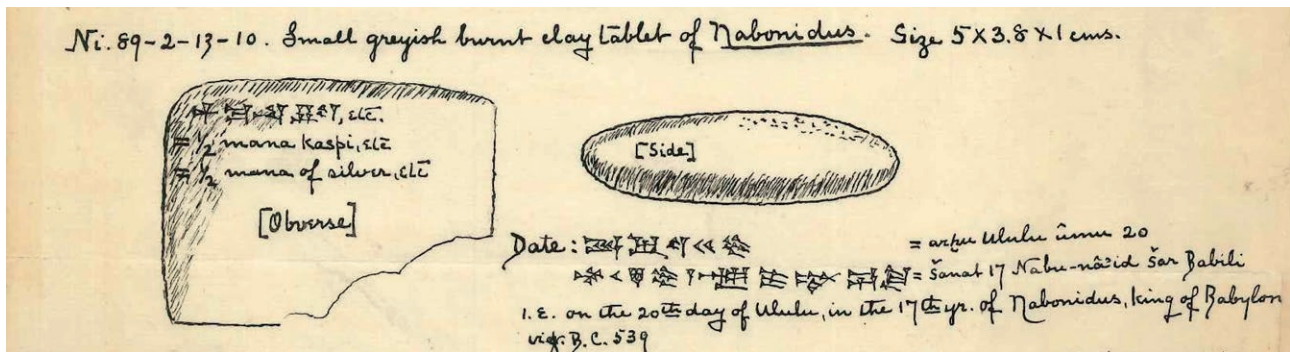 Ni. 89-2-13-10. Small greyish burnt clay tablet of Nabonidus. Size 5 X 3.8 X 1 cms.
etc.
= 1/2 mana kaspi, etc
= 1/2 mana of silver, etc
[Obverse]
[Side]
Date: = arḫu Ululu ûmu 20
= šanat 17 Nabu-nâ'id šar Babili
I.E. on the 20th day of Ululu, in the 17th yr. of Nabonidus, king of Babylon
viz. B.C. 539